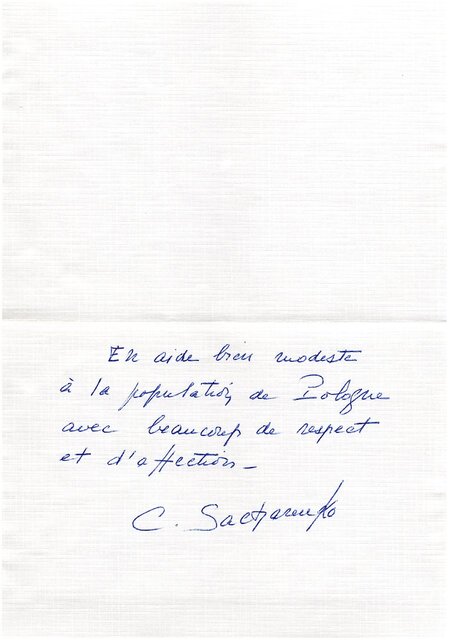 En aide bien modeste
à la population de Pologne
avec beaucoup de respect
et d'affection_
C. Sacharenko